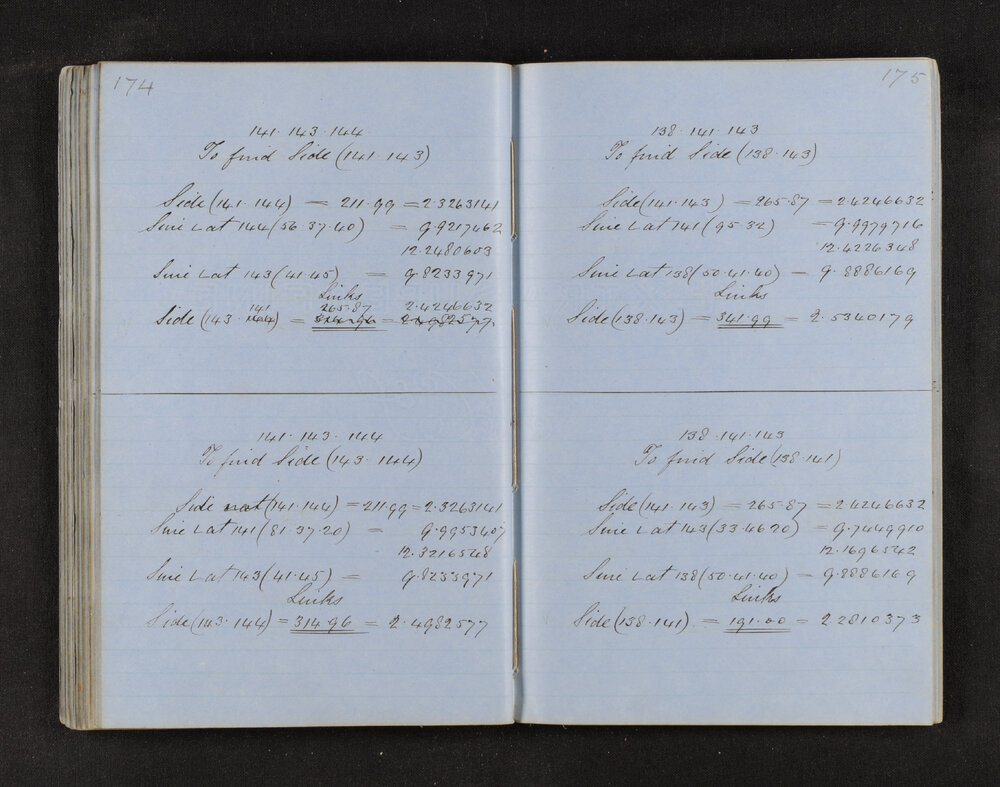 174
141 · 143 · 144
To find Side (141 · 143)
Side (141 · 144) = 211.99 = 2.3263141
Sine L at 144 (56 · 37 · 40) = 9.9217462
12.2480603
Sine L at 143 (41 · 45) = 9.8233971
Links
141 265.87 2.4246632
Side (143 · 144) = 314.96 = 2.4982577
141 · 143 · 144
To find Side (143 · 144)
Side (141 · 144) = 211.99 = 2.3263141
Sine L at 141 (81 · 37 · 20) = 9.9953407
12.3216548
Sine L at 143 (41 · 45) = 9.8233971
Links
Side (143 · 144) = 314.96 = 2.4982577
175
138 · 141 · 143
To find Side (138 · 143)
Side (141 · 143) = 265.87 = 2.4246632
Sine L at 141 (95 · 32) = 9.9979716
12.4226348
Sine L at 138 (50 · 41 · 40) = 9.8886169
Links
Side (138 · 143) = 341.99 = 2.5340179
138 · 141 · 143
To find Side (138 · 141)
Side (141 · 143) = 265.87 = 2.4246632
Sine L at 143 (33 · 46 20) = 9.7449910
12.1696542
Sine L at 138 (50 · 41 · 40) = 9.8886169
Links
Side (138 · 141) = 191.00 = 2.2810373